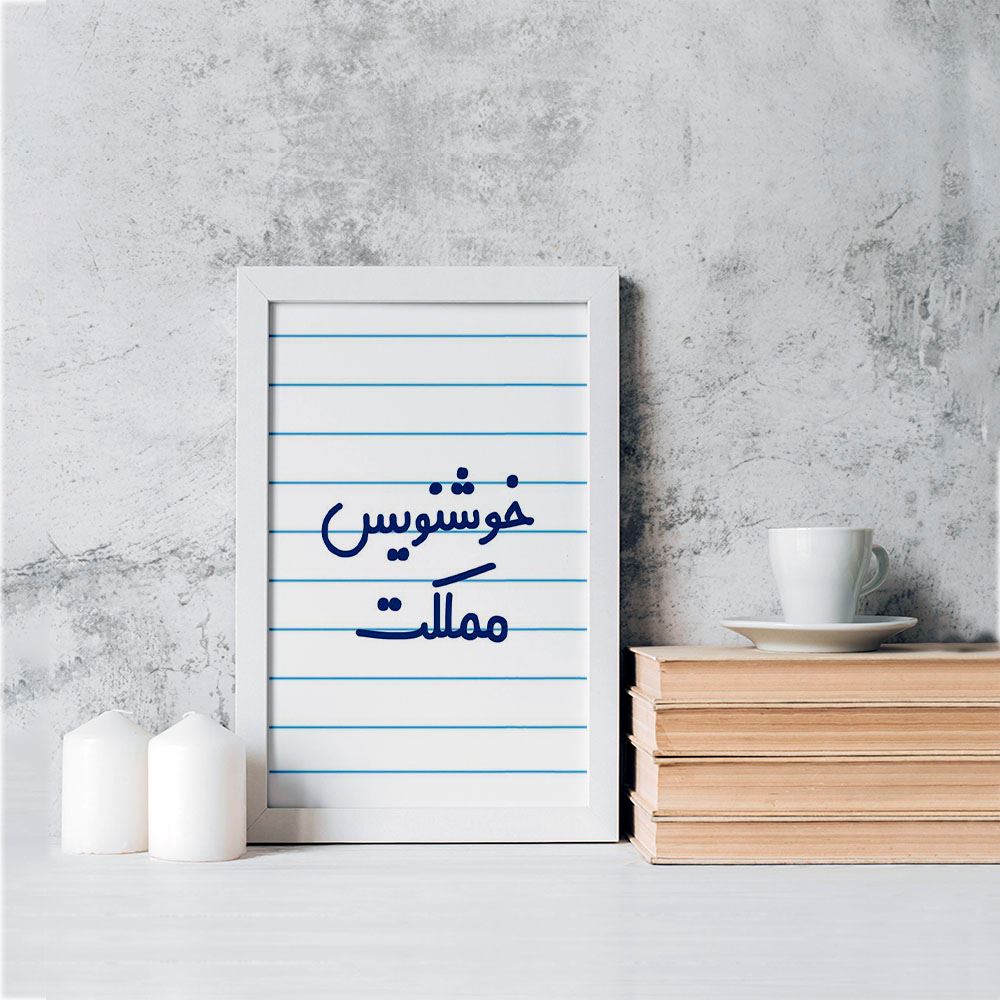 خوشنویس
مملکت